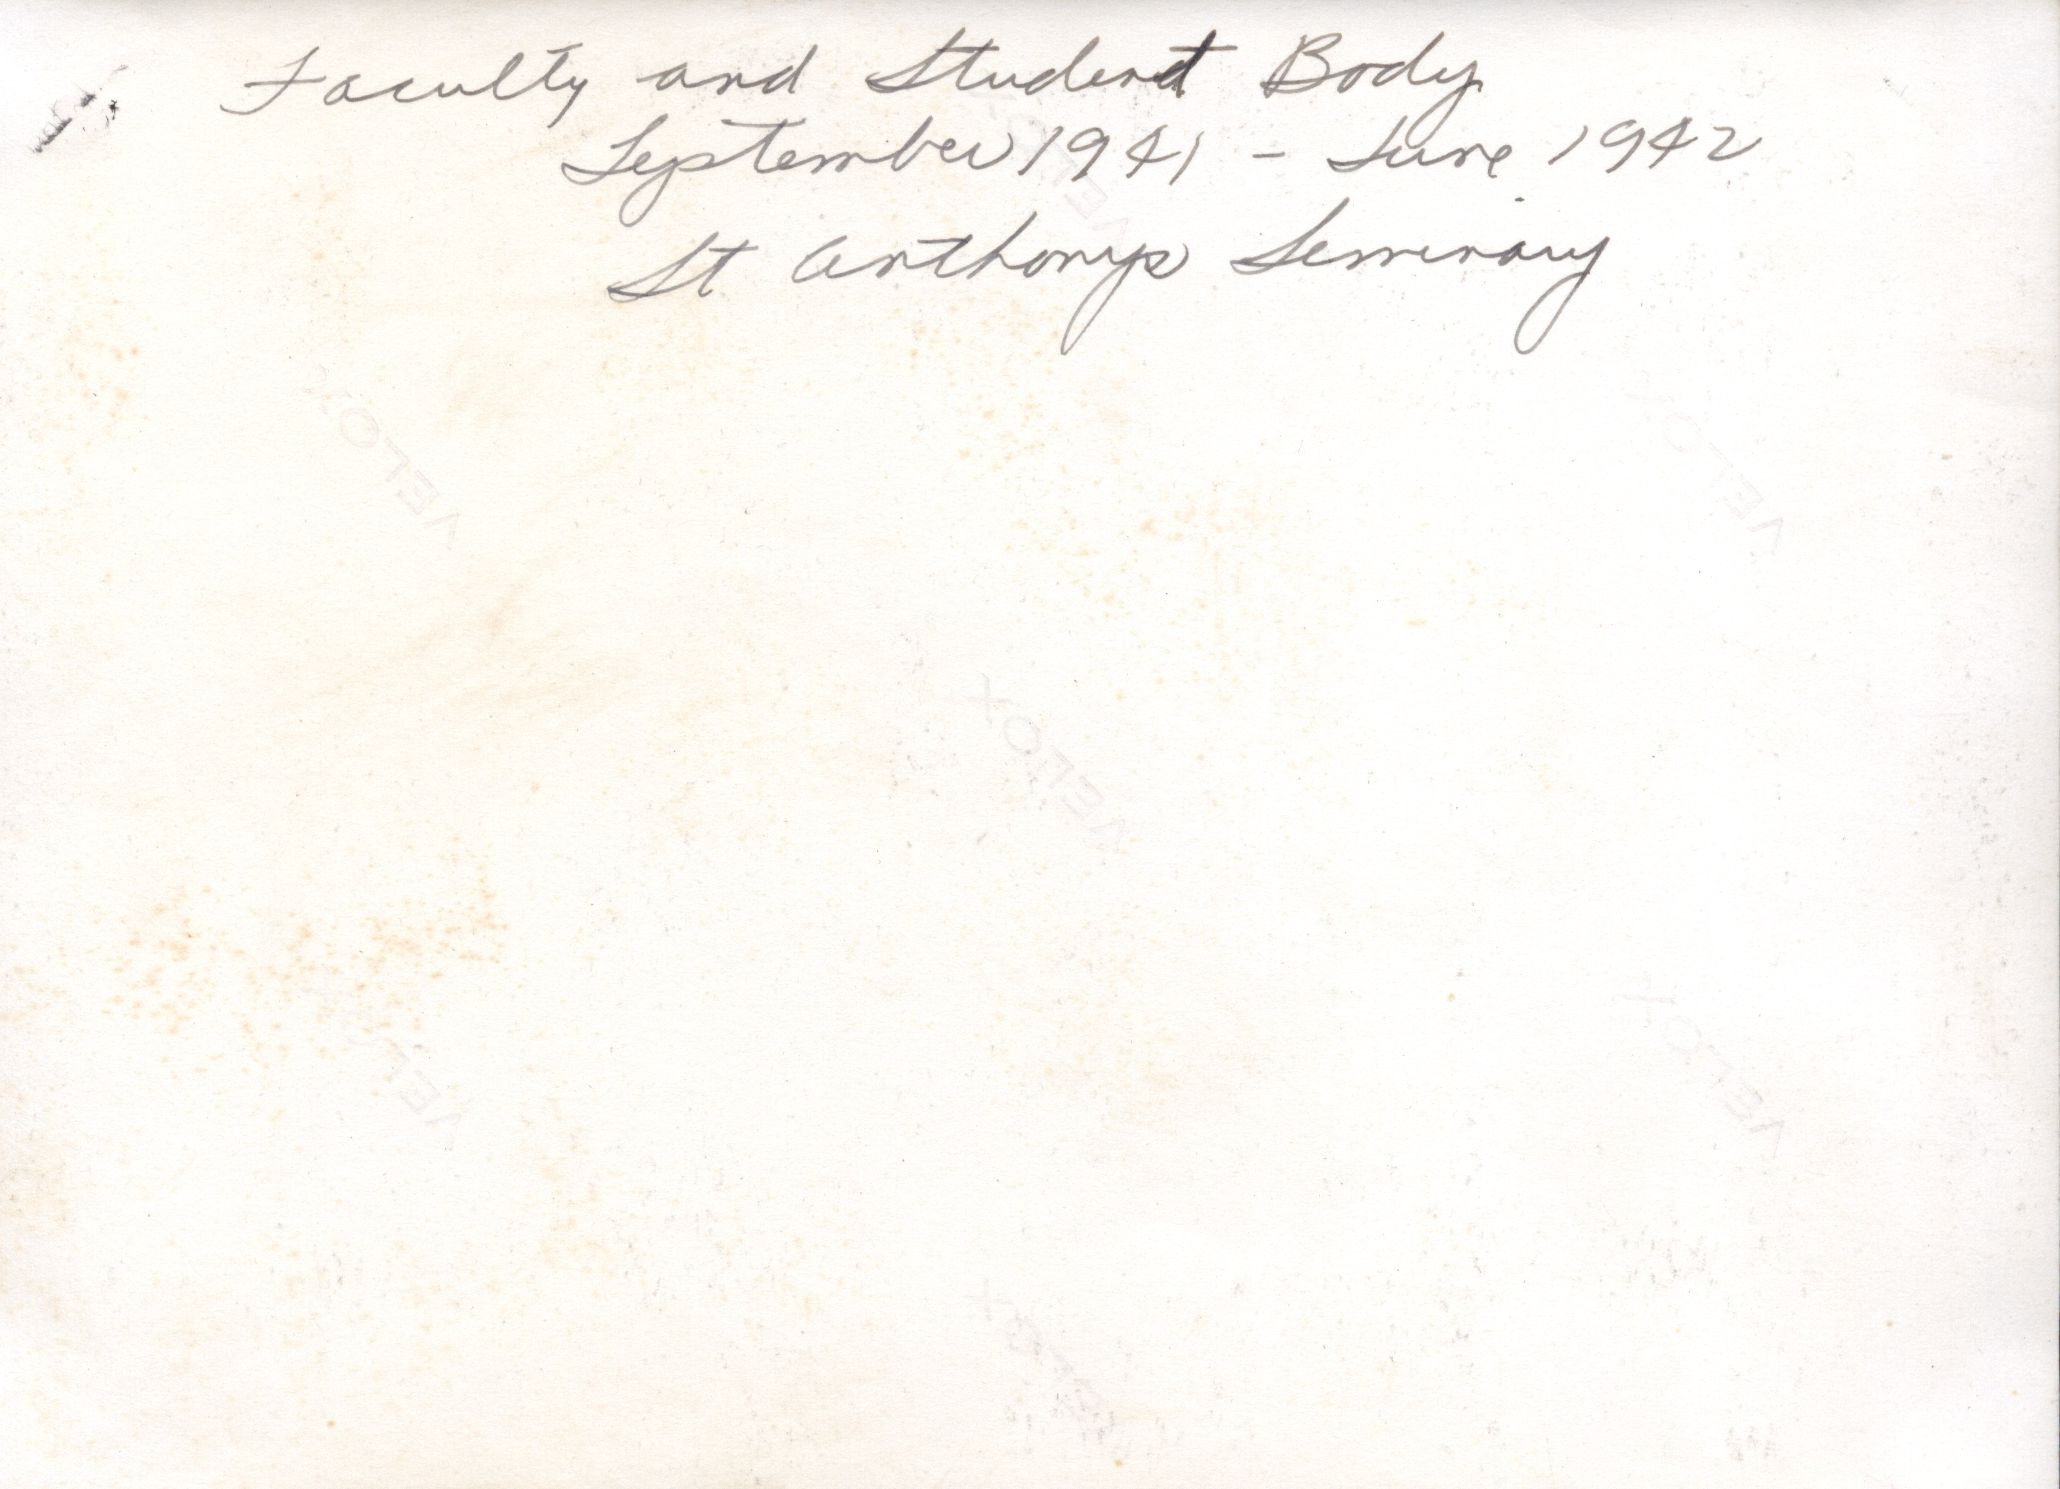 Faculty and Student Body
September 1941 - June 1942
St Anthonys Seminary
VELOX
VELOX
VELOX
VELOX
VELOX
VELOX
VELOX